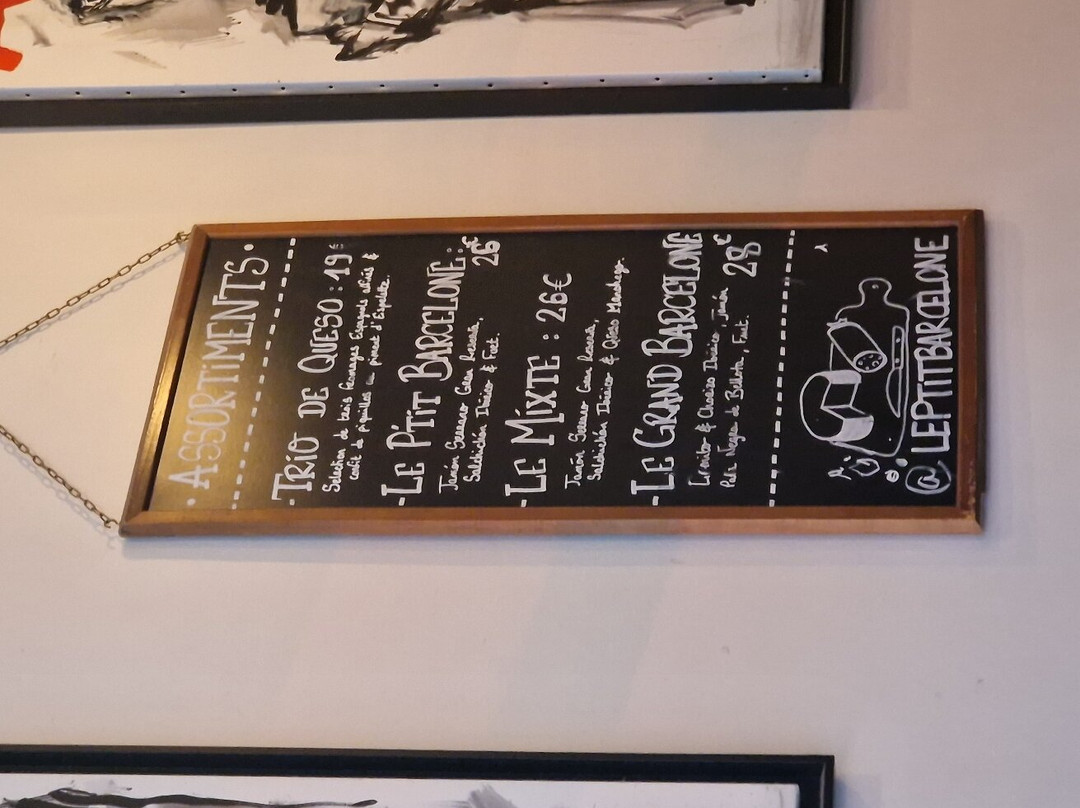 · ASSORTIMENTS ·
- TRIO DE QUESO : 19€
Sélection de trois fromages Espagnols affinés &
confit de piquillos au piment d'Espelette.
- LE P'TIT BARCELONE :
26€
Jamón Serrano Gran Reserva,
Salchichón Ibérico & Fuet.
- LE MIXTE : 26€
Jamón Serrano Gran Reserva,
Salchichón Ibérico & Queso Manchego.
- LE GRAND BARCELONE
28€
Lomito & Chorizo Ibérico, Jamón
Pata Negra de Bellota, Fuet.
@LEPTITBARCELONE